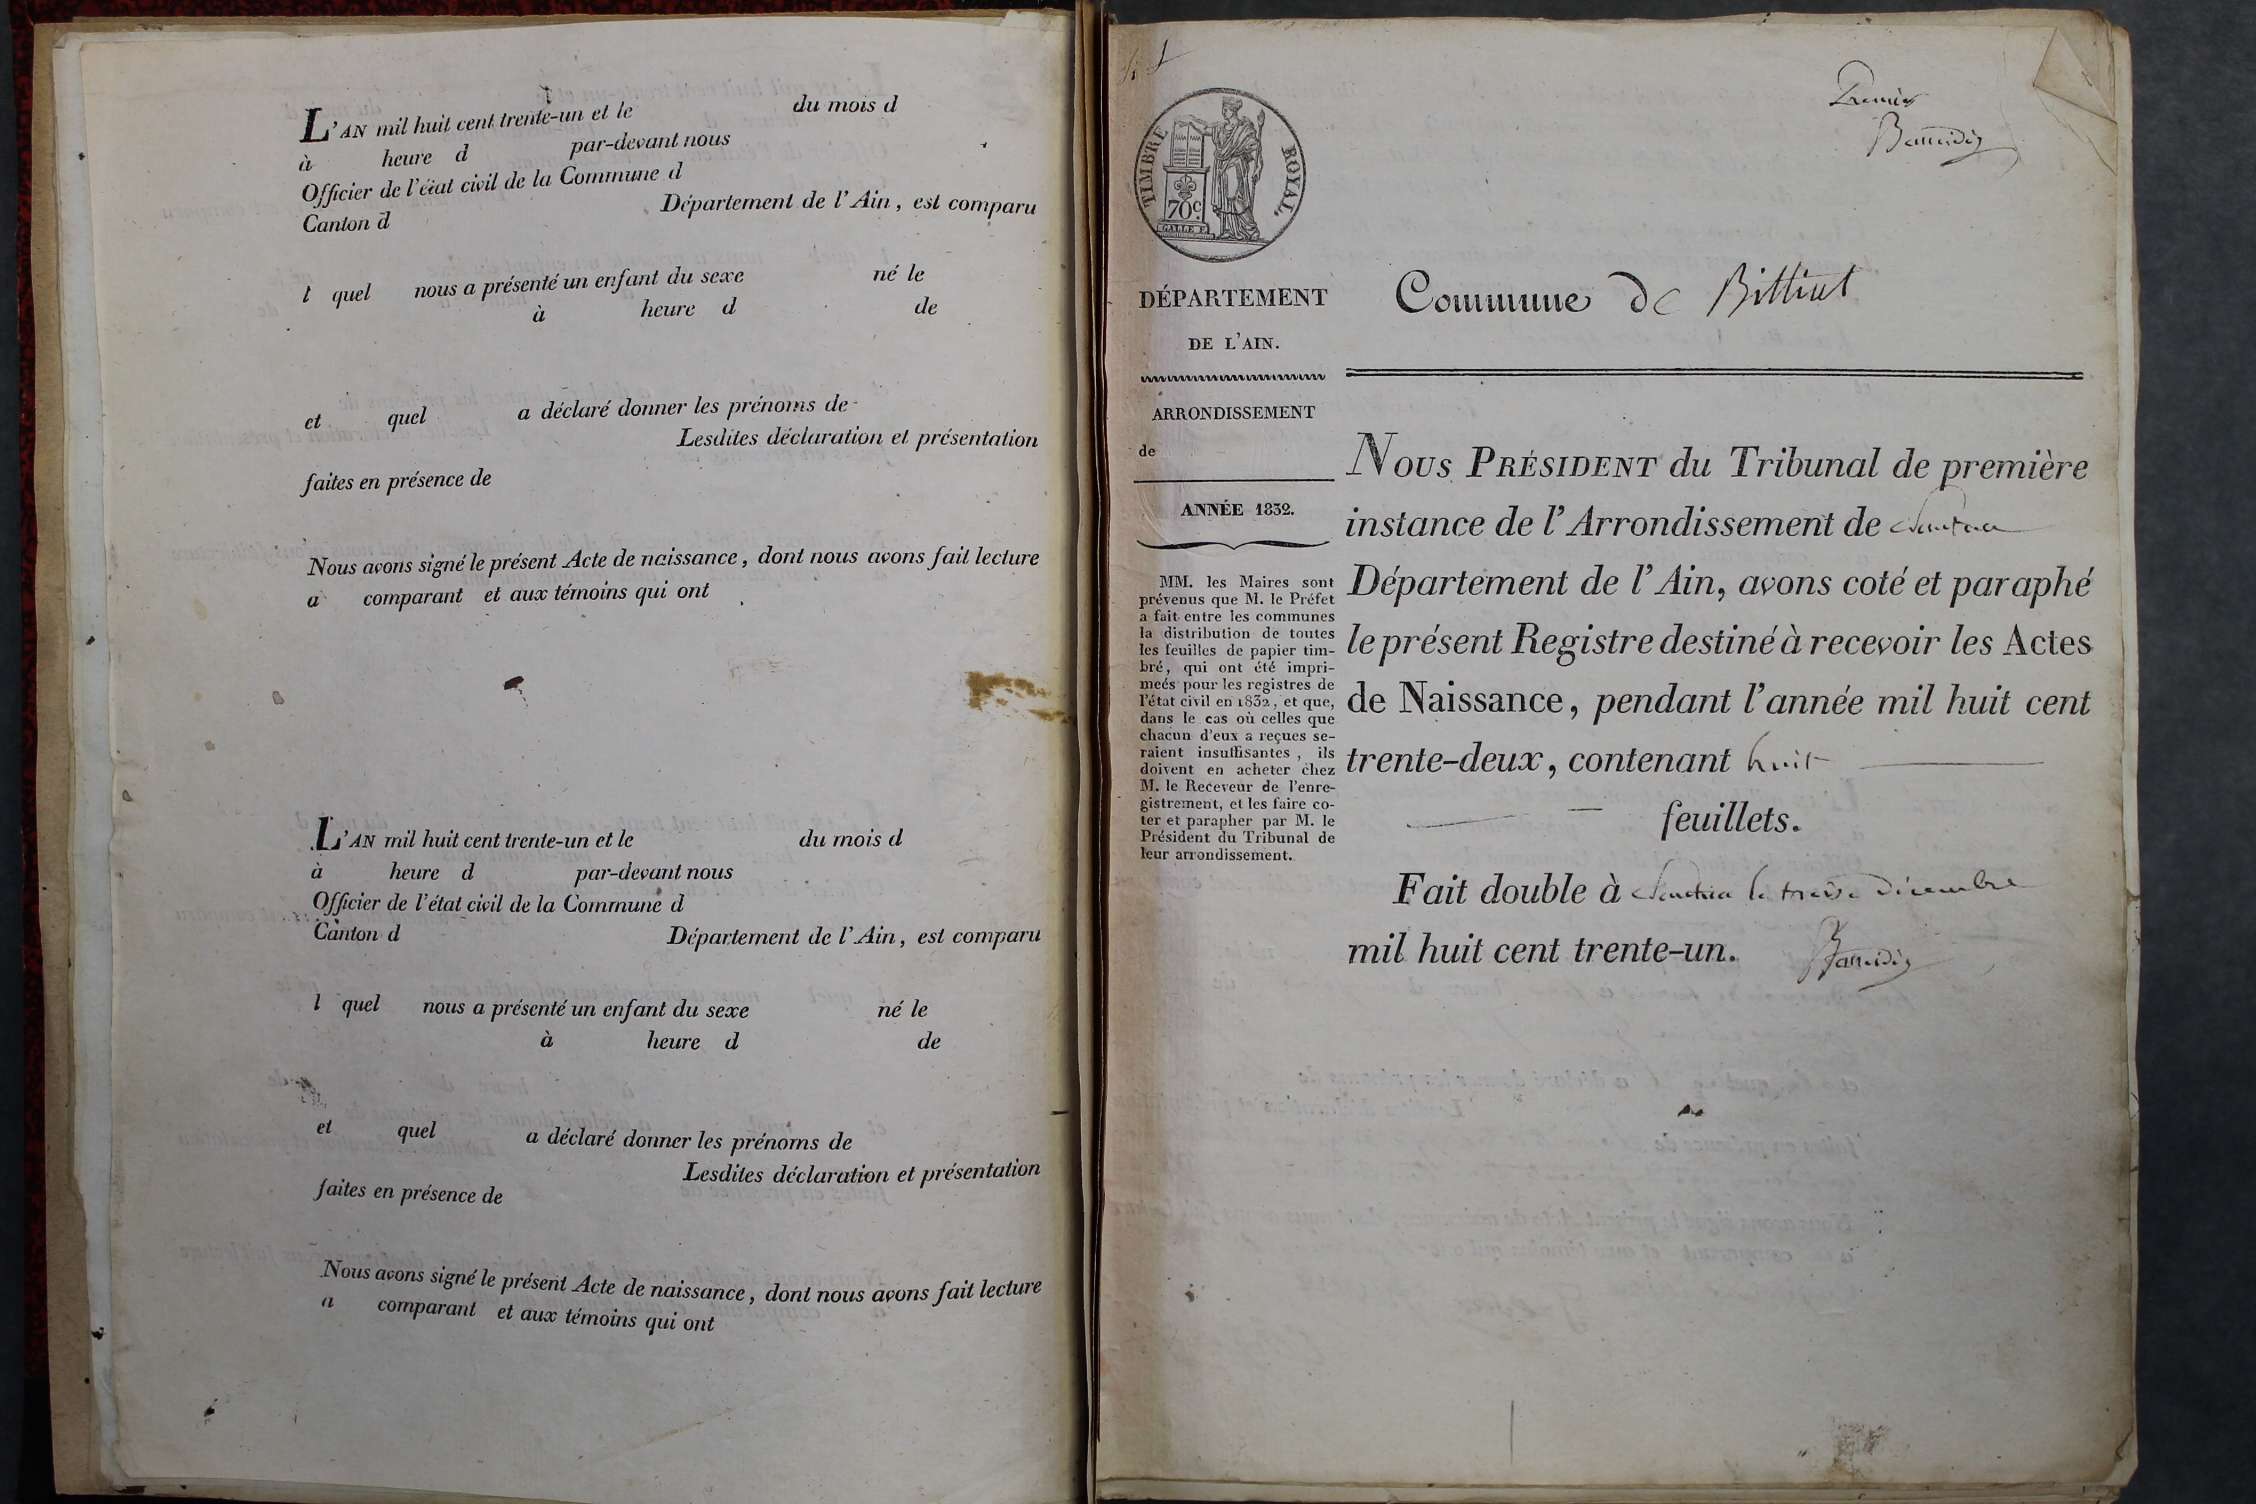 L'AN mil huit cent trente-un et le du mois d
à heure d par-devant nous
Officier de l'état civil de la Commune d
Canton d Département de l'Ain, est comparu
l quel nous a présenté un enfant du sexe né le
à heure d de
et quel a déclaré donner les prénoms de
Lesdites déclaration et présentation
faites en présence de
Nous avons signé le présent Acte de naissance, dont nous avons fait lecture
a comparant et aux témoins qui ont
L'AN mil huit cent trente-un et le du mois d
à heure d par-devant nous
Officier de l'état civil de la Commune d
Canton d Département de l'Ain, est comparu
l quel nous a présenté un enfant du sexe né le
à heure d de
et quel a déclaré donner les prénoms de
Lesdites déclaration et présentation
faites en présence de
Nous avons signé le présent Acte de naissance, dont nous avons fait lecture
a comparant et aux témoins qui ont
Premier
TIMBRE ROYAL.
70c
DÉPARTEMENT
DE L'AIN.
ARRONDISSEMENT
de
ANNÉE 1832.
MM. les Maires sont
prévenus que M. le Préfet
a fait entre les communes
la distribution de toutes
les feuilles de papier tim-
bré, qui ont été impri-
meés pour les registres de
l'état civil en 1832, et que,
dans le cas où celles que
chacun d'eux a reçues se-
raient insuffisantes, ils
doivent en acheter chez
M. le Receveur de l'enre-
gistrement, et les faire co-
ter et parapher par M. le
Président du Tribunal de
leur arrondissement.
Commune de
NOUS PRÉSIDENT du Tribunal de première
instance de l'Arrondissement de Nantua
Département de l'Ain, avons coté et paraphé
le présent Registre destiné à recevoir les Actes
de Naissance, pendant l'année mil huit cent
trente-deux, contenant huit
feuillets.
Fait double à Nantua le treize Décembre
mil huit cent trente-un.